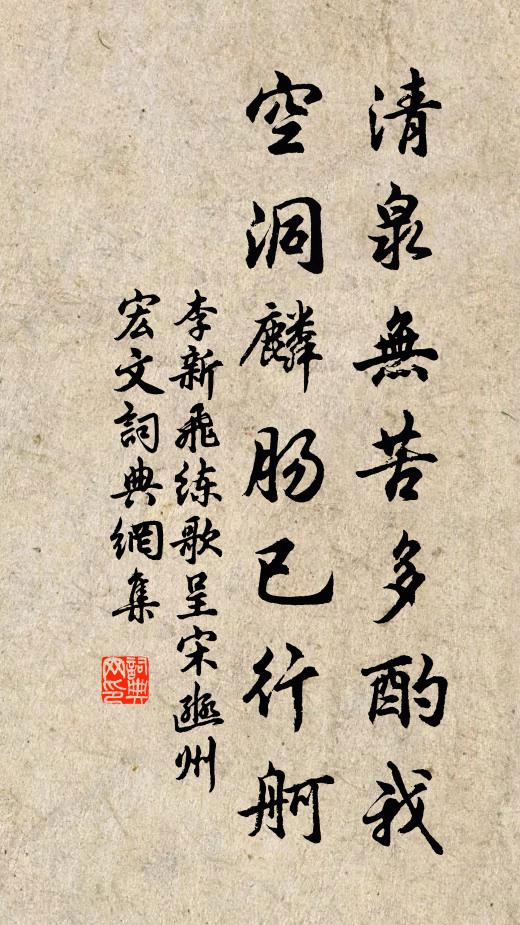 清泉無苦多酌我
空洞麟肠已行舸
李新飛练歌呈宋遂州
宏文詞典網集
詞典網印